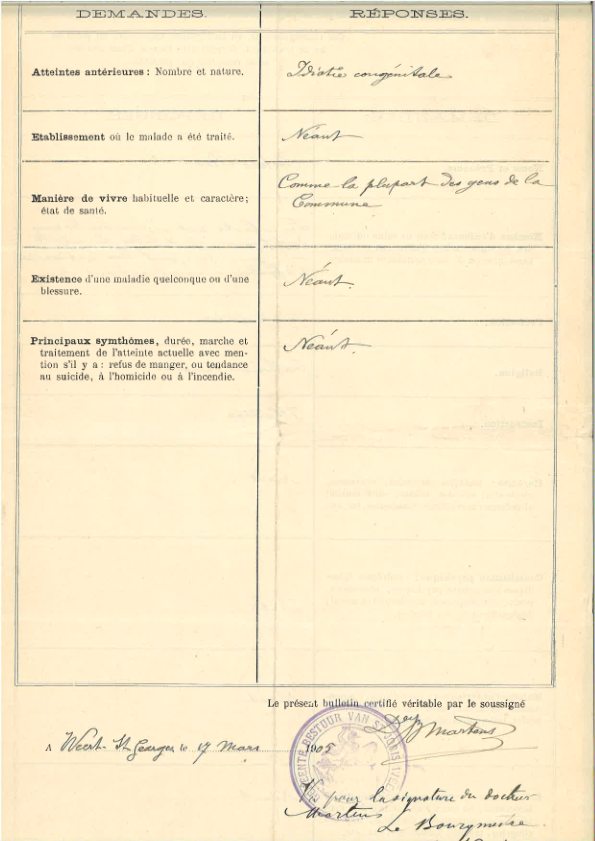 DEMANDES.
RÉPONSES.
Atteintes antérieures : Nombre et nature.
Idiotie congénitale
Etablissement où le malade a été traité.
Néant
Manière de vivre habituelle et caractère;
état de santé.
Comme la plupart des gens de la
Commune
Existence d'une maladie quelconque ou d'une
blessure.
Néant.
Principaux symthômes, durée, marche et
traitement de l'atteinte actuelle avec men-
tion s'il y a : refus de manger, ou tendance
au suicide, à l'homicide ou à l'incendie.
Néant.
Le présent bulletin certifié véritable par le soussigné
Martens
A Weert-St Georges le 17 Mars 1905
GEMEENTE BESTUUR VAN ST JORIS WEERT
pour la signature du docteur
Martens
Le Bourgmestre